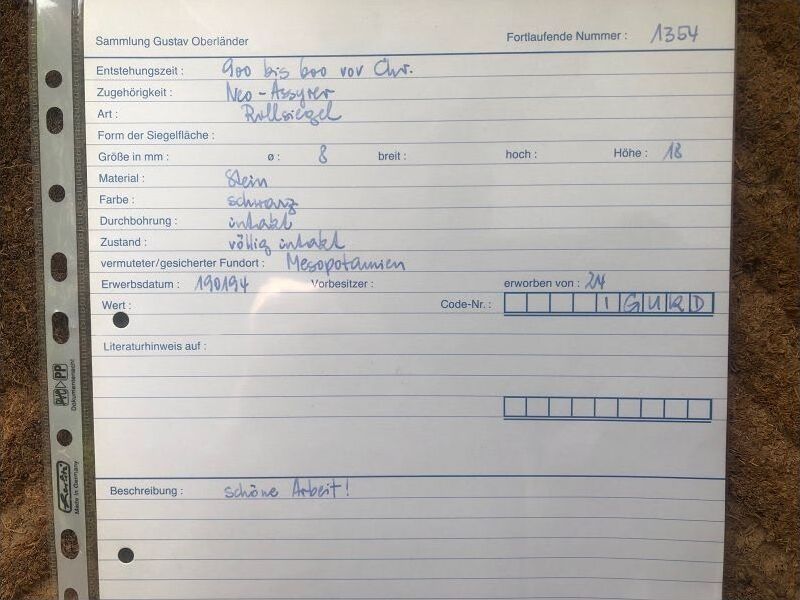 Sammlung Gustav Oberländer Fortlaufende Nummer : 1354
Entstehungszeit : 900 bis 600 vor Chr.
Zugehörigkeit : Neo-Assyrer
Art : Rollsiegel
Form der Siegelfläche :
Größe in mm : ø : 8 breit : hoch : Höhe : 18
Material : Stein
Farbe : schwarz
Durchbohrung : intakt
Zustand : völlig intakt
vermuteter/gesicherter Fundort : Mesopotamien
Erwerbsdatum : 190194 Vorbesitzer : erworben von : 24
Wert : Code-Nr. : I G U R D
Literaturhinweis auf :
Beschreibung : schöne Arbeit!
PP
Dokumentenecht
Herlitz
Made in Germany